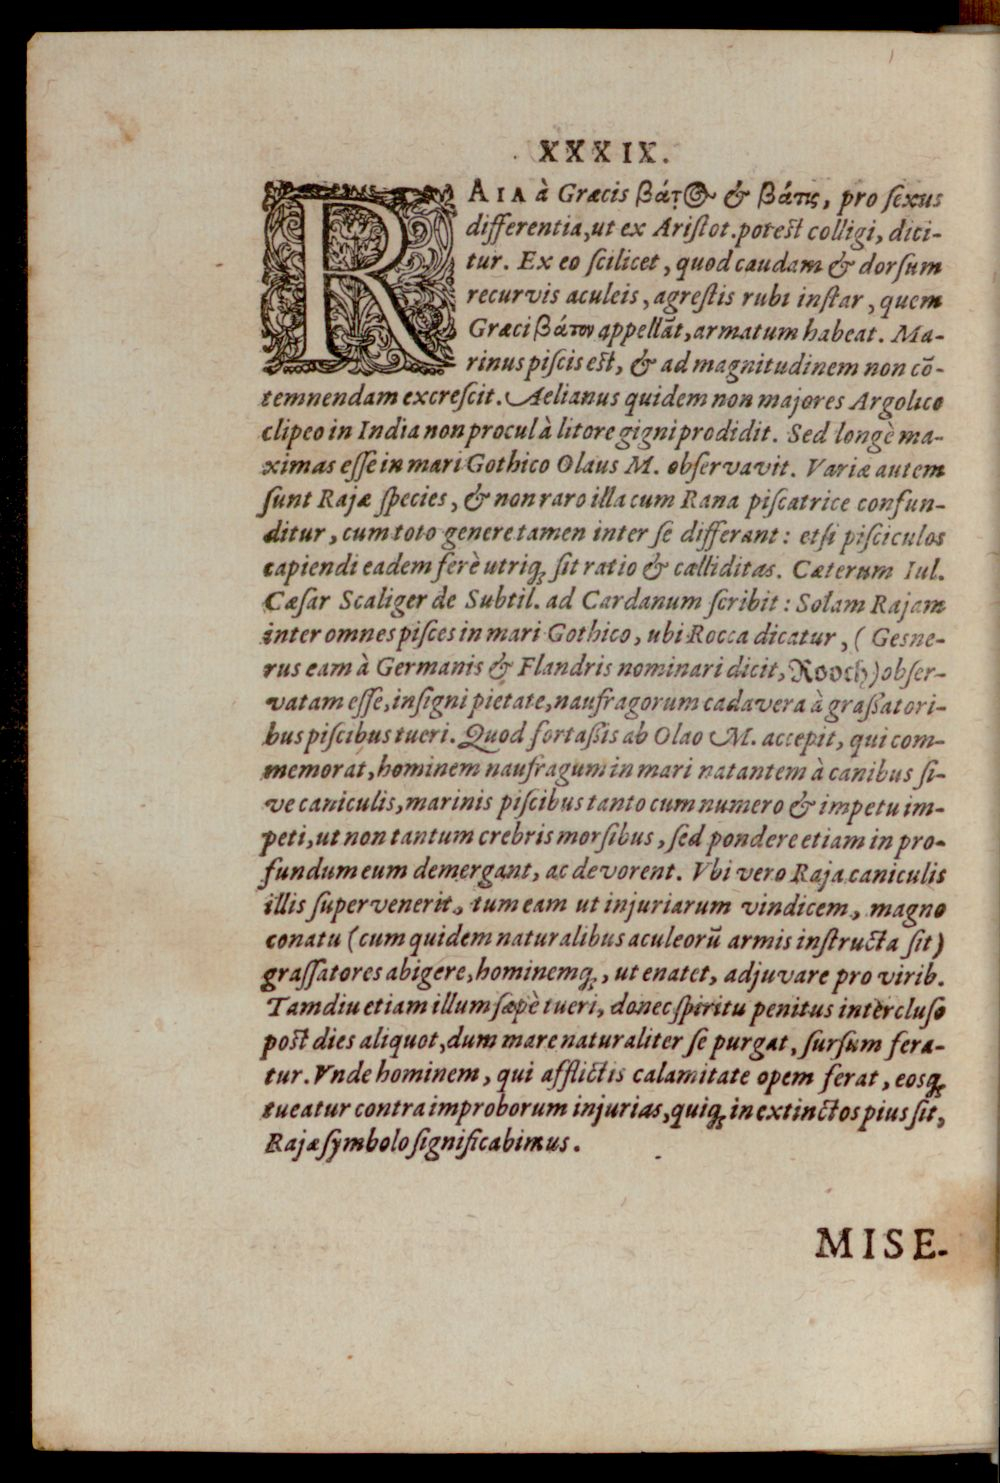 XXXIX.
RAIA à Græcis βάτος & βάτις, pro ſexus
differentia, ut ex Ariſtot. poteſt colligi, dici-
tur. Ex eo ſcilicet, quod caudam & dorſum
recurvis aculeis, agreſtis rubi inſtar, quem
Græci βάτον appellāt, armatum habeat. Ma-
rinus piſcis eſt, & ad magnitudinem non cō-
temnendam excreſcit. Aelianus quidem non majores Argolico
clipeo in India non procul à litore gigni prodidit. Sed longè ma-
ximas eſſe in mari Gothico Olaus M. obſervavit. Variæ autem
ſunt Rajæ ſpecies, & non raro illa cum Rana piſcatrice confun-
ditur, cum toto genere tamen inter ſe differant: etſi piſciculos
capiendi eadem ferè utriq; ſit ratio & calliditas. Cæterum Iul.
Cæſar Scaliger de Subtil. ad Cardanum ſcribit: Solam Rajam
inter omnes piſces in mari Gothico, ubi Rocca dicatur, (Geſne-
rus eam à Germanis & Flandris nominari dicit, Rooch) obſer-
vatam eſſe, inſigni pietate, naufragorum cadavera à graßatori-
bus piſcibus tueri. Quod fortaßis ab Olao M. accepit, qui com-
memorat, hominem naufragum in mari natantem à canibus ſi-
ve caniculis, marinis piſcibus tanto cum numero & impetu im-
peti, ut non tantum crebris morſibus, ſed pondere etiam in pro-
fundum eum demergant, ac devorent. Vbi vero Raja caniculis
illis ſupervenerit, tum eam ut injuriarum vindicem, magno
conatu (cum quidem naturalibus aculeorū armis inſtructa ſit)
graſſatores abigere, hominemq;, ut enatet, adjuvare pro virib.
Tamdiu etiam illum ſæpè tueri, donec ſpiritu penitus intercluſo
poſt dies aliquot, dum mare naturaliter ſe purgat, ſurſum fera-
tur. Vnde hominem, qui afflictis calamitate opem ferat, eosq;
tueatur contra improborum injurias, quiq; in extinctos pius ſit,
Rajæ ſymbolo ſignificabimus.
MISE-